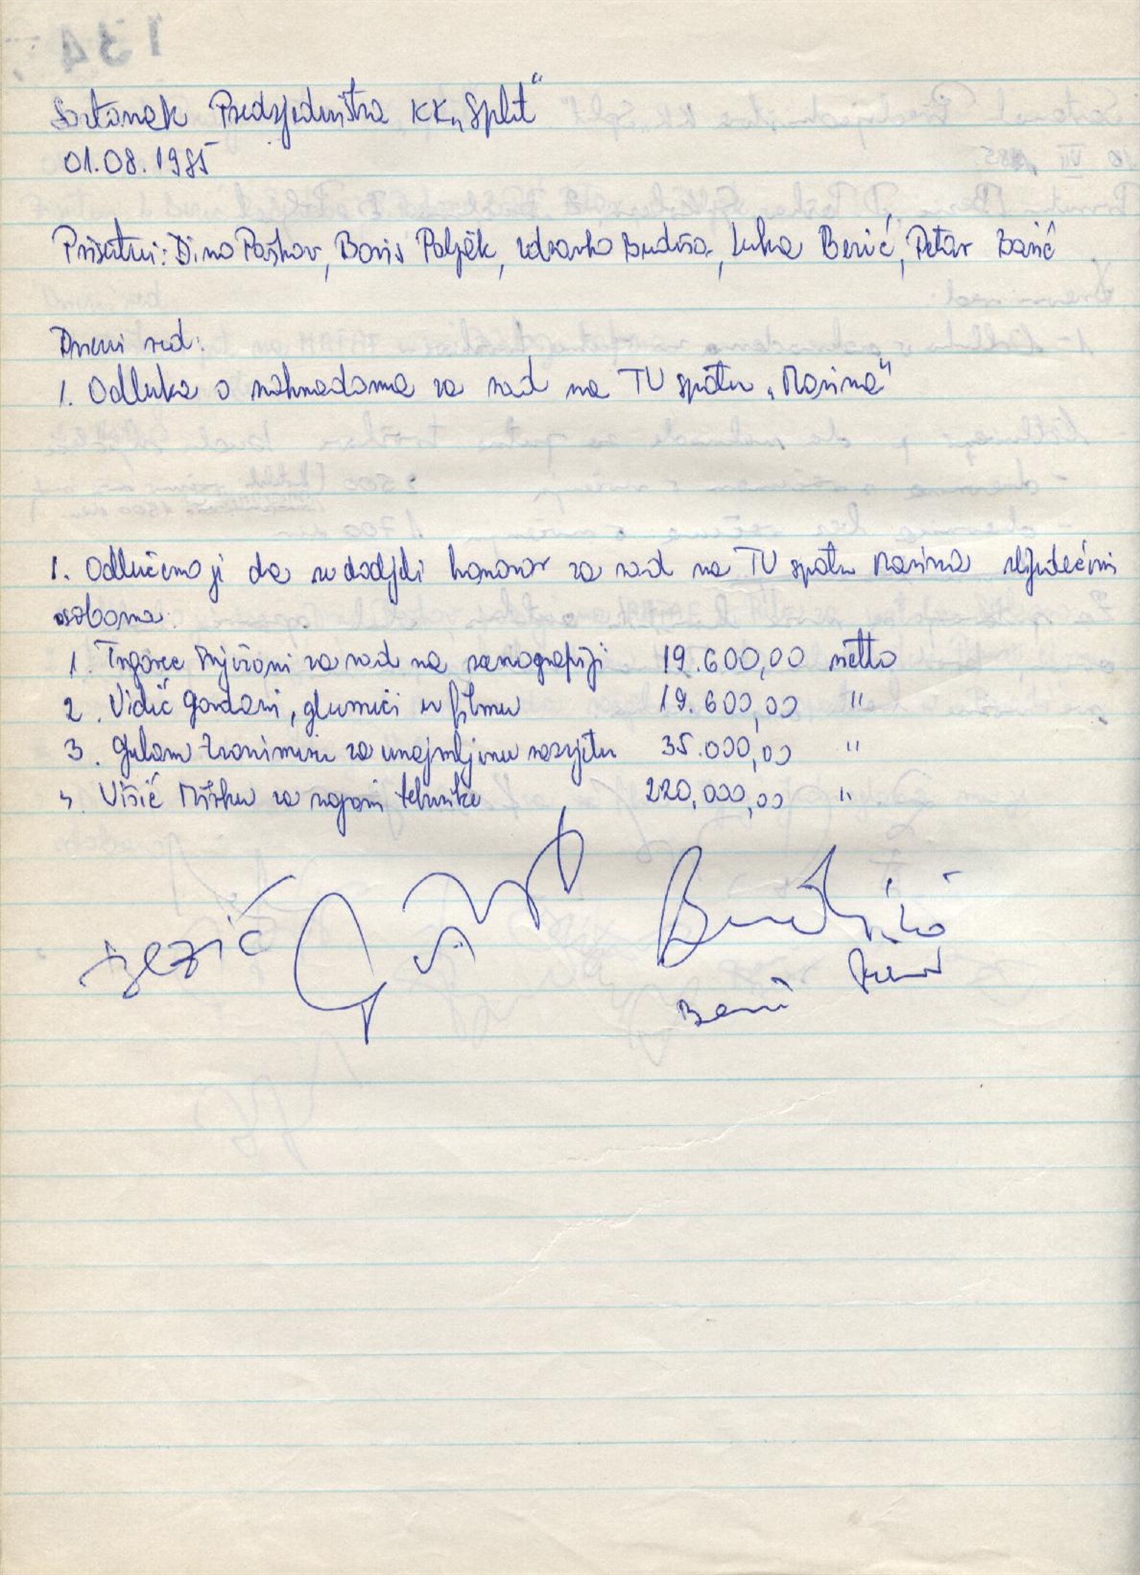 Sastanak Predsjedništva KK „Split“
01.08.1985
Prisutni: Dino Paškov, Boris Poljak, Zdravko Budiša, Luka Bezić, Petar Banić
Dnevni red:
1. Odluka o naknadama za rad na TV spotu „Marina“
1. Odlučeno ji da se dodjeli honorar za rad na TV spotu Marina slijedećim
osobama.
1. Trgovac Snježani za rad na scenografiji 19.600,00 netto
2. Vidić Gordani, glumici u filmu 19.600,00 "
3. Gulam Zvonimiru za unajmljenu rasvjetu 35.000,00 "
4. Višić Mišku za najam tehnike 220,000,00 "
Bezić
Budiša
Banić